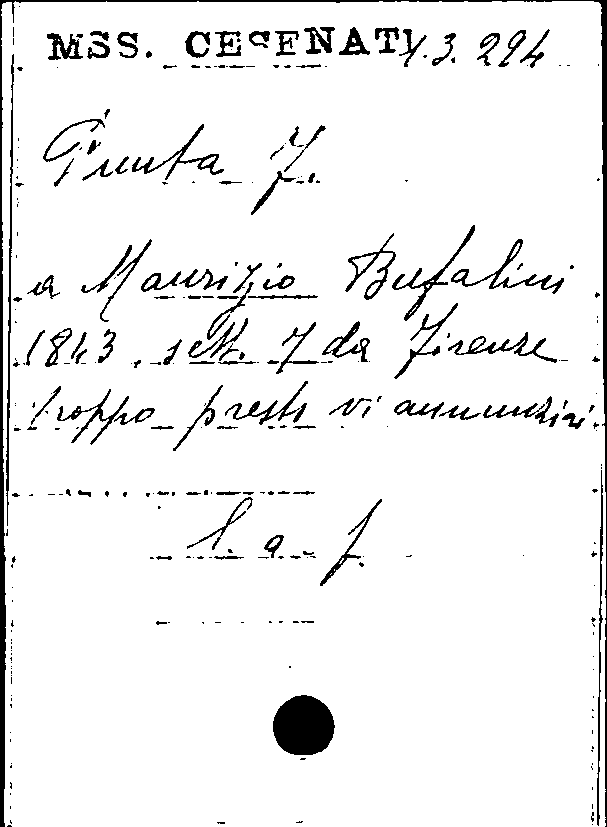 MSS. CESENATI 1.3.294
Punta F.
a Maurizio Bufalini
1843. sett. 7 da Firenze
troppo presto vi annunziai
l. a. f.